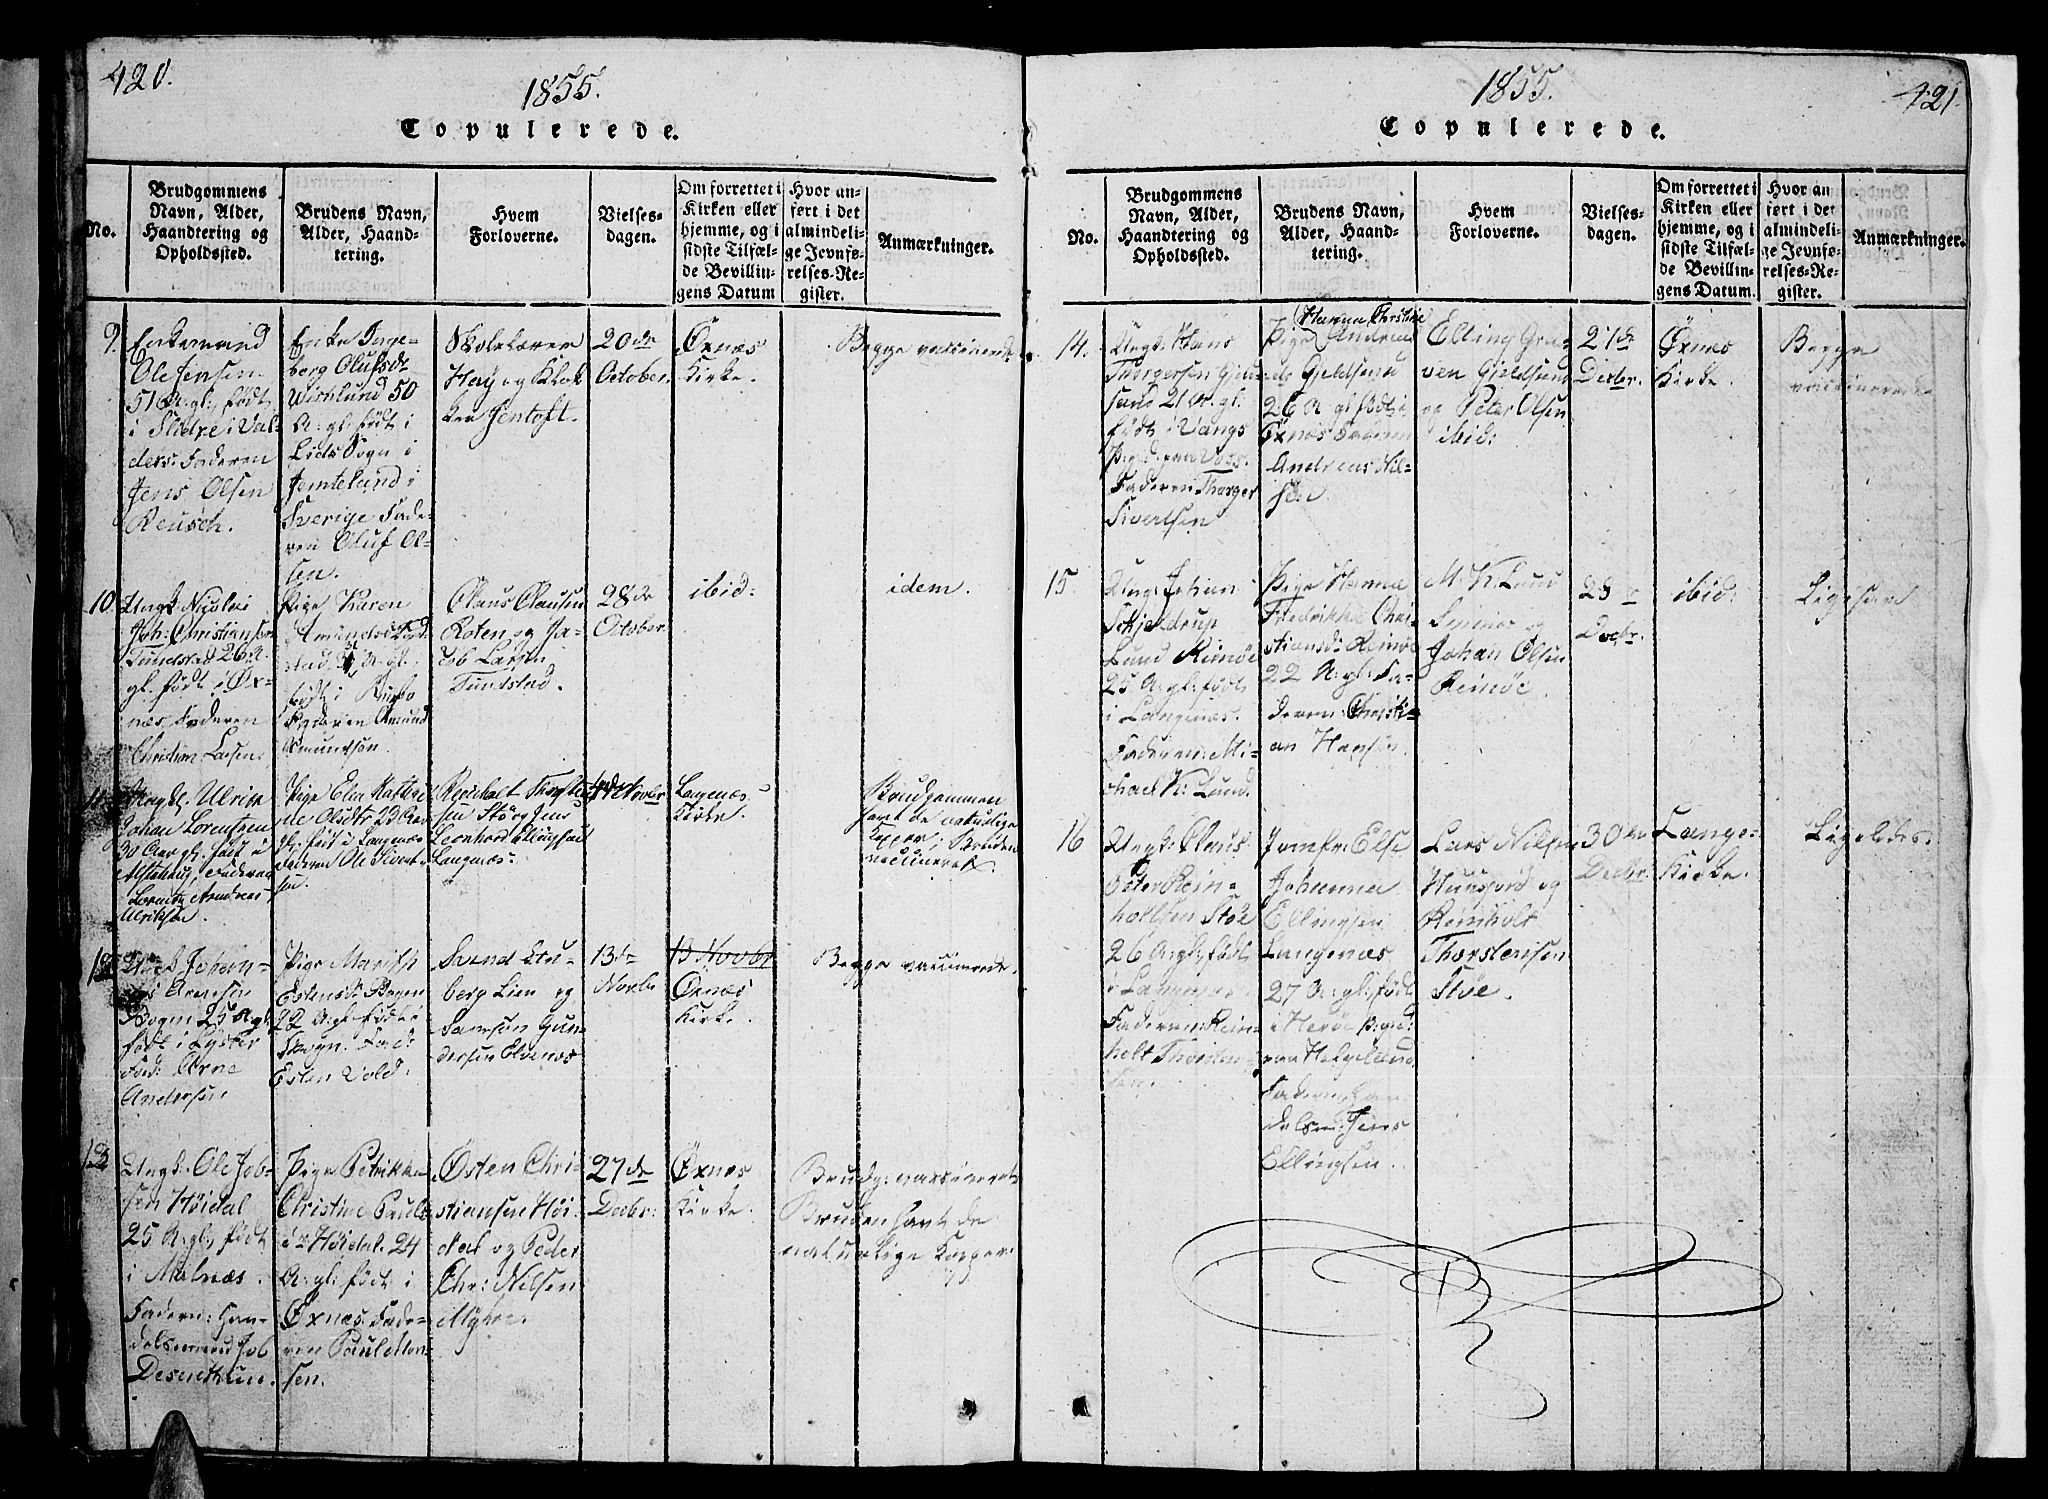 420.
1855.
Copulerede.
No.
Brudgommens
Navn, Alder,
Haandtering og
Opholdssted.
Brudens Navn,
Alder, Haand-
tering.
Hvem
Forloverne.
Vielses-
dagen.
Om forrettet i
Kirken eller
hjemme, og i
sidste Tilfæl-
de Bevillin-
gens Datum
Hvor an-
ført i det
almindeli-
ge Jevnfø-
relses-Re-
gister.
Anmærkninger.
9.
Enkemand
Ole Jensen
51 A: gl:, født
i Slidre i Val-
ders. Faderen
Jens Olsen
Reusch.
Enke Inge-
borg Olufsdr
Wiklund 50
A: gl: født i
Lids Sogn i
Jemteland i
Sverige Fade-
ren Oluf Ol-
sen.
Skolelærer
Hay og Klok-
ker Jentoft.
20de
October.
Öxnæs
Kirke.
Begge vaccinerede
10.
Ungk: Nicolai
Joh: Christiansen
Tundstad 26 A:
gl. født i Øx-
næs, Faderen
Christian Larsen.
Pige Karen
Amundsd Tund-
stad, A: gl.
født i
Faderen Amund
Amundsen
Olaus Olausen
Roten og Ja-
cob Larsen
Tundstad.
28de
October
ibid:
idem.
11.
Ungk. Ulrik
Johan Lorentzen
30 Aar gl. født i
Alstahoug, Faderen
Lorentz Andreas
Ulriksen.
Pige Elen Kathri-
ne Olsdtr 23 Aar
gl. født i Langenæs
Faderen Ole Sivert-
sen.
Reinholt Thorsten-
sen Stö og Jens
Leonhard Ellingsen
Langenæs.
Novbr
Langenæs
Kirke.
Brudgommen
havt de naturlige
Kopper; Bruden
vaccineret.
12
Ungk Johan-
nes Arnesen
Bogen 25 A gl
født i Lyster
Fad: Arne
Andersen
Pige Marith
Estensdr Bogen
22 A: gl: født i
Fad:
Esten Vold.
Svend Stu-
berg Lien og
Samson Gun-
dersen Elvenes
13de
Novbr
13 Novbr
Öxnæs
Kirke.
Begge vaccinerede.
13
Ungk: Ole Job-
sen Höidal
25 A: gl:, født
i Malnæs.
Faderen: Han-
delsmand Job
Desinthun.
Pige Petrikke
Christine Pauls-
dr Höidal. 24
A: gl: født i
Öxnæs. Fade-
ren Paul Mon-
sen.
Østen Chri-
stiansen Höi-
dal og Peder
Chr: Nilsen
Myhre.
27de
Decbr:
Öxnæs
Kirke.
Brudg: vaccineret
Bruden havt de
naturlige Kopper.
1855.
421.
Copulerede.
No.
Brudgommens
Navn, Alder,
Haandtering og
Opholdssted.
Brudens Navn,
Alder, Haand-
tering.
Hvem
Forloverne.
Vielses-
dagen.
Om forrettet i
Kirken eller
hjemme, og i
sidste Tilfæl-
de Bevillin-
gens Datum.
Hvor an
ført i det
almindeli-
ge Jevnfø-
relses-Re-
gister.
Anmærkninger.
14.
Ungk: Hans
Thorgersen Gjeld-
sund 21 A. gl.
født i Vangs
Pgd. paa Voss.
Faderen: Thorger
Sivertsen
Hanna Christine
Pige Andrea-
sdr Gjeldsund
26 A gl født i
Öxnæs Faderen
Andreas Nil-
sen.
Elling Gra-
ven Gjeldsund
og Peter Olsen
ibid:
27de
Decbr.
Öxnæs
Kirke.
Begge
vaccinerede
15.
Ungk: Johan
Schjeldrup
Lund Reinöe
25 A: gl: født
i Langenæs.
Faderen: Mi-
chael K: Lund.
Pige Hanna
Fredrikke Chri-
stiansdr Reinöe
22 A: gl: Fa-
deren: Christi-
an Hansen.
M. K. Lund
og
Johan Olsen
Reinöe.
Decbr.
ibid:
Ligesaa
16
Ungk: Olaus
Peter Rein-
holtsen Stöe
26 A gl: født
i Langenæs.
Faderen: Rein-
holt Thorsten-
sen.
Jomfr: Else
Johanna
Ellingsen
Langenæs
27 A: gl: født
i Heröe Pgd:
paa Helgeland
Faderen, Han-
delsm: Jens
Ellingsen.
Lars Nilsen
og
Reinholt
Thorstensen
Stöe.
30de
Decbr.
Lange-
Kirke.
Ligeledes.